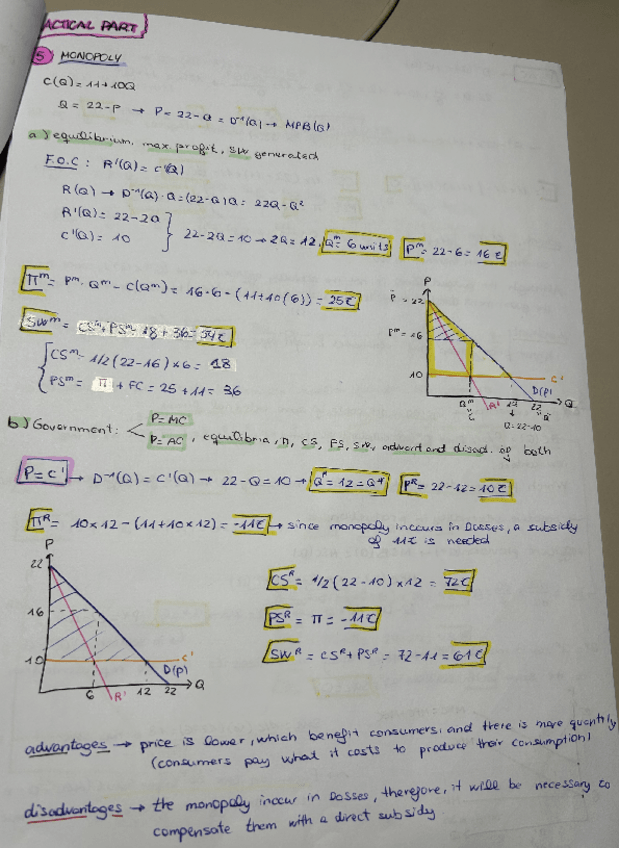 ACTICAL PART
5 MONOPOLY
C(Q) = 11+10Q
Q = 22-P → P = 22-Q = D⁻¹(Q) → MPB(Q)
a) equilibrium, max profit, SW generated
F.O.C: R'(Q) = C'(Q)
R(Q) → D⁻¹(Q)·Q = (22-Q)Q = 22Q-Q²
R'(Q) = 22-2Q
C'(Q) = 10
} 22-2Q = 10 → 2Q = 12, Qᵐ = 6 units Pᵐ = 22-6 = 16€
Πᵐ = Pᵐ·Qᵐ - C(Qᵐ) = 16·6 - (11+10(6)) = 25€
SWᵐ = CSᵐ + PSᵐ = 18 + 36 = 54€
CSᵐ = 1/2(22-16)×6 = 18
PSᵐ = Π + FC = 25 + 11 = 36
P
P = 22
Pᵐ = 16
10
C'
Qᵐ
R'
12
22
D(P)
Q
Q = 22-10
b) Government: P = MC
P = AC, equilibria, Π, CS, PS, SW, advant and disad. of both
P = C' → D⁻¹(Q) = C'(Q) → 22-Q = 10 → Qᴿ = 12 = Q* Pᴿ = 22-12 = 10€
Πᴿ = 10×12 - (11+10×12) = -11€ → since monopoly incours in losses, a subsidy
of 11€ is needed
P
22
16
10
C'
D(P)
6
R'
12
22
Q
CSᴿ = 1/2(22-10)×12 = 72€
PSᴿ = Π = -11€
SWᴿ = CSᴿ + PSᴿ = 72-11 = 61€
advantages → price is lower, which benefit consumers, and there is more quantity
(consumers pay what it costs to produce their consumption)
disadvantages → the monopoly incour in losses, therefore, it will be necessary to
compensate them with a direct subsidy